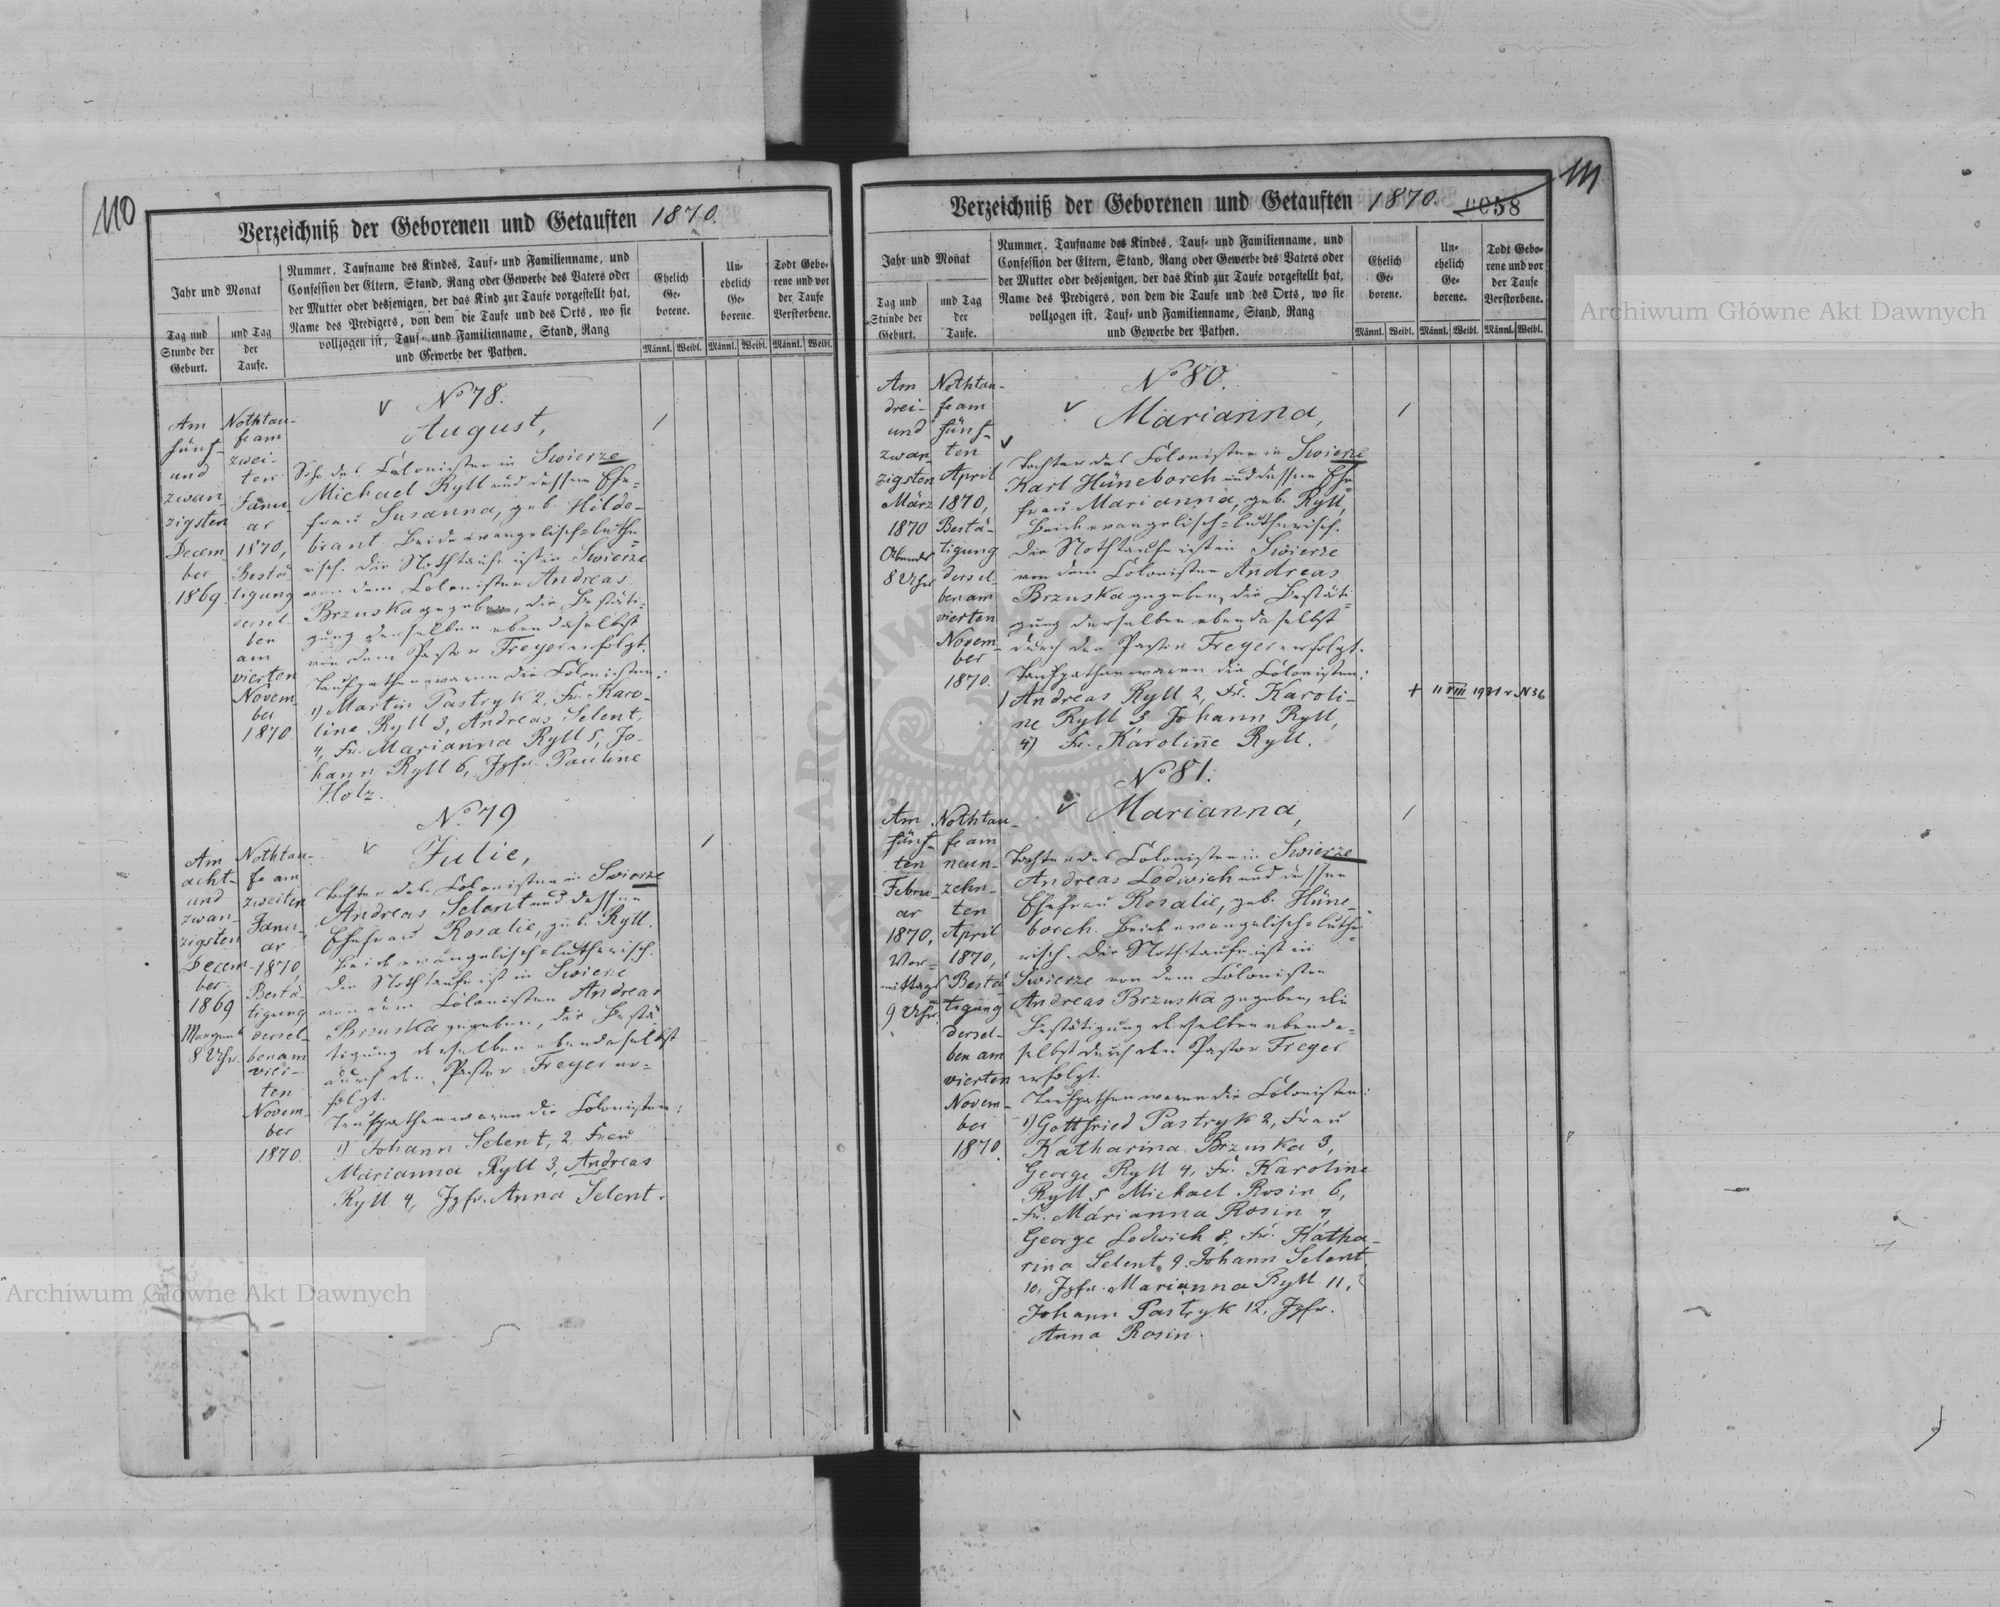 110
Verzeichniß der Geborenen und Getauften 1870.
Jahr und Monat
Tag und Stunde der Geburt.
und Tag der Taufe.
Nummer, Taufname des Kindes, Tauf- und Familienname, und
Confession der Eltern, Stand, Rang oder Gewerbe des Vaters oder
der Mutter oder desjenigen, der das Kind zur Taufe vorgestellt hat,
Name des Predigers, von dem die Taufe und des Orts, wo sie
vollzogen ist, Tauf- und Familienname, Stand, Rang
und Gewerbe der Pathen.
Ehelich Geborene.
Unehelich Geborene.
Todt Geborene und vor der Taufe Verstorbene.
Männl. Weibl. Männl. Weibl. Männl. Weibl.
Am
fünf-
und
zwan
zigsten
Decem
ber
1869.
Nothtau-
fe am
zwei-
ten
Janu-
ar
1870,
Bestä
tigung
dersel
ben
am
vierten
Novem
ber
1870.
No 78.
August,
Sohn des Colonisten in Swierze
Michael Ryll und dessen Ehe-
frau Susanna, geb. Hilde-
brant. Beide evangelisch-luthe-
risch. Die Nothtaufe ist in Swierze
von dem Colonisten Andreas
Brzuska gegeben, die Bestäti-
gung derselben ebendaselbst
von dem Pastor Freyer erfolgt.
Taufpathen waren die Colonisten:
1) Martin Pastryk 2, Fr. Karo-
line Ryll 3, Andreas Selent,
4, Fr. Marianna Ryll 5, Jo-
hann Ryll 6, Jgfr. Pauline
Holz.
Am
acht-
und
zwan-
zigsten
Decem
ber
1869
Morgens
8 Uhr.
Nothtau-
fe am
zweiten
Janu-
ar
1870,
Bestä-
tigung
dersel-
ben am
vier-
ten
Novem-
ber
1870.
No 79
Julie,
Tochter des Colonisten in Swierze
Andreas Selent und dessen
Ehefrau Rosalie, geb. Ryll.
Beide evangelisch-lutherisch.
Die Nothtaufe ist in Swierze
von dem Colonisten Andreas
Brzuska gegeben, die Bestä
tigung derselben ebendaselbst
durch den Pastor Freyer er-
folgt.
Taufpathen waren die Colonisten:
1) Johann Selent, 2. Frau
Marianna Ryll 3, Andreas
Ryll 4, Jgfr. Anna Selent.
111
0058
Verzeichniß der Geborenen und Getauften 1870.
Jahr und Monat
Tag und Stunde der Geburt.
und Tag der Taufe.
Nummer, Taufname des Kindes, Tauf- und Familienname, und
Confession der Eltern, Stand, Rang oder Gewerbe des Vaters oder
der Mutter oder desjenigen, der das Kind zur Taufe vorgestellt hat,
Name des Predigers, von dem die Taufe und des Orts, wo sie
vollzogen ist, Tauf- und Familienname, Stand, Rang
und Gewerbe der Pathen.
Ehelich Geborene.
Unehelich Geborene.
Todt Geborene und vor der Taufe Verstorbene.
Männl. Weibl. Männl. Weibl. Männl. Weibl.
Am
drei-
und
zwan
zigsten
März
1870
Abends
8 Uhr
Nothtau-
fe am
fünf-
ten
April
1870,
Bestä-
tigung
dersel-
ben am
vierten
Novem-
ber
1870.
No 80.
Marianna,
Tochter des Colonisten in Swierze
Karl Hüneborch und dessen Ehe
frau Marianna, geb. Ryll,
Beide evangelisch-lutherisch.
Die Nothtaufe ist in Swierze
von dem Colonisten Andreas
Brzuska gegeben, die Bestäti-
gung derselben ebendaselbst
durch den Pastor Freyer erfolgt.
Taufpathen waren die Colonisten:
1 Andreas Ryll 2, Fr. Karoli-
ne Ryll 3 Johann Ryll,
4) Fr. Karoline Ryll.
+ 11 VIII 1931 r. N 36
Am
fünf-
ten
Febru-
ar
1870,
Vor-
mittags
9 Uhr.
Nothtau-
fe am
neun-
zehn-
ten
April
1870,
Bestä
tigung
dersel-
ben am
vierten
Novem-
ber
1870.
No 81.
Marianna,
Tochter des Colonisten in Swierze
Andreas Lodwich und dessen
Ehefrau Rosalie, geb. Hüne-
borch. Beide evangelisch-luthe-
risch. Die Nothtaufe ist in
Swierze von dem Colonisten
Andreas Brzuska gegeben, die
Bestätigung derselben ebenda-
selbst durch den Pastor Freyer
erfolgt.
Taufpathen waren die Colonisten:
1) Gottfried Pastryk 2, Frau
Katharina Brzuska 3,
George Ryll 4, Fr. Karoline
Ryll 5 Michael Rosin 6,
Fr. Marianna Rosin 7
George Lodwich 8, Fr. Katha-
rina Selent 9. Johann Selent
10, Jgfr. Marianna Ryll 11,
Johann Pastryk 12, Jgfr.
Anna Rosin.
Archiwum Główne Akt Dawnych
Archiwum Główne Akt Dawnych